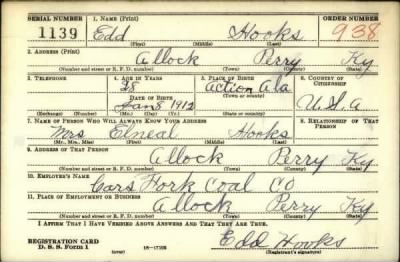 SERIAL NUMBER 1. NAME (Print) ORDER NUMBER
1139 Edd Hooks 938
(First) (Middle) (Last)
2. ADDRESS (Print)
Allock Perry Ky
(Number and street or R. F. D. number) (Town) (County) (State)
3. TELEPHONE 4. AGE IN YEARS 5. PLACE OF BIRTH 6. COUNTRY OF CITIZENSHIP
28 Acton Ala
DATE OF BIRTH (Town or county)
Jan 8 1912 U.S.A
(Exchange) (No.) (Mo.) (Day) (Yr.) (State or country)
7. NAME OF PERSON WHO WILL ALWAYS KNOW YOUR ADDRESS 8. RELATIONSHIP OF THAT PERSON
Mrs Elneal Hooks
(Mr., Mrs., Miss) (First) (Middle) (Last)
9. ADDRESS OF THAT PERSON
Allock Perry Ky
(Number and street or R. F. D. number) (Town) (County) (State)
10. EMPLOYER'S NAME
Cars Fork Coal CO
11. PLACE OF EMPLOYMENT OR BUSINESS
Allock Perry Ky
(Number and street or R. F. D. number) (Town) (County) (State)
I AFFIRM THAT I HAVE VERIFIED ABOVE ANSWERS AND THAT THEY ARE TRUE.
REGISTRATION CARD
D. S. S. Form 1 (over) Edd Hooks
(Registrant's signature)